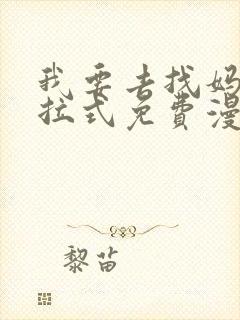 我要去找妈
拉式免費漫
黎苗